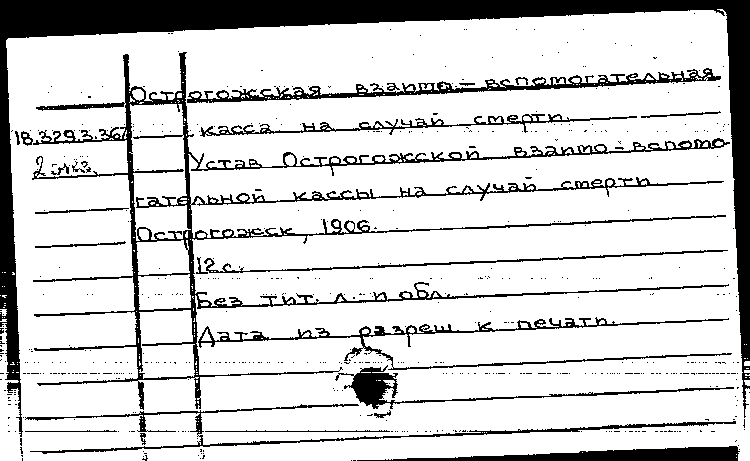 Острогожская взаимо-вспомогательная
18.329.3.367 касса на случай смерти.
2 экз. Устав Острогожской взаимо-вспомо-
гательной кассы на случай смерти
Острогожск, 1906.
12 с.
Без тит. л. и обл.
Дата из разреш к печати.